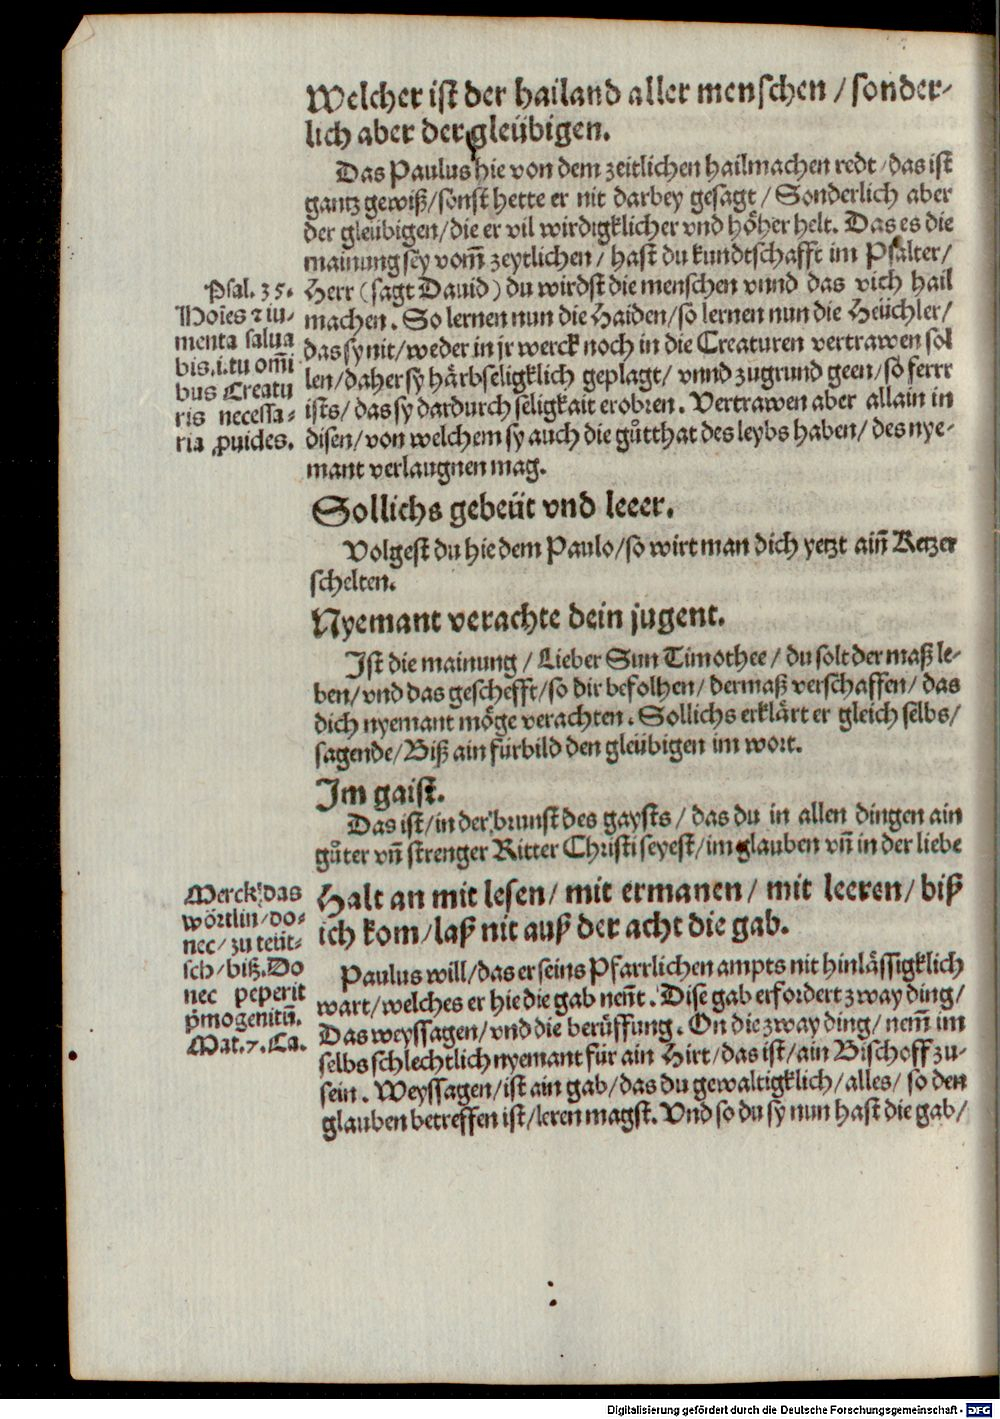 Welcher ist der hailand aller menschen / sonder-
lich aber der gleübigen.
Das Paulus hie von dem zeitlichen hailmachen redt / das ist
gantz gewiß / sonst hette er nit darbey gesagt / Sonderlich aber
der gleübigen / die er vil wirdigklicher vnd höher helt. Das es die
mainung sey vom̃ zeytlichen / hast du kundtschafft im Psalter /
Herr (sagt Dauid) du wirdst die menschen vnnd das vich hail
machen. So lernen nun die Haiden / so lernen nun die Heüchler /
das sy nit / weder in jr werck noch in die Creaturen vertrawen sol
len / daher sy härbseligklich geplagt / vnnd zugrund geen / so ferrr
ists / das sy dardurch seligkait erobren. Vertrawen aber allain in
disen / von welchem sy auch die gůtthat des leybs haben / des nye-
mant verlaugnen mag.
Psal. 35.
Moīes ⁊ iu-
menta salua
bis .i. tu om̄i
bus Creatu
ris necessa-
ria ꝓuides.
Sollichs gebeüt vnd leeer.
Volgest du hie dem Paulo / so wirt man dich yetzt ain̄ Ketzer
schelten.
Nyemant verachte dein jugent.
Ist die mainung / Lieber Sun Timothee / du solt der maß le-
ben / vnd das geschefft / so dir befolhen / dermaß verschaffen / das
dich nyemant möge verachten. Sollichs erklärt er gleich selbs /
sagende / Biß ain fürbild den gleübigen im wort.
Im gaist.
Das ist / in der brunst des gaysts / das du in allen dingen ain
gůter vn̄ strenger Ritter Christi seyest / im glauben vn̄ in der liebe
Halt an mit lesen / mit ermanen / mit leeren / biß
ich kom / laß nit auß der acht die gab.
Merck das
wörtlin / do-
nec / zu teüt-
sch / biß. Do
nec peperit
p̄mogenitū.
Mat. 7. Ca.
Paulus will / das er seins Pfarrlichen ampts nit hinlässigklich
wart / welches er hie die gab nen̄t. Dise gab erfordert zway ding /
Das weyssagen / vnd die berüffung. On die zway ding / nem̄ im
selbs schlechtlich nyemant für ain Hirt / das ist / ain Bischoff zu-
sein. Weyssagen / ist ain gab / das du gewaltigklich / alles / so den
glauben betreffen ist / leren magst. Vnd so du sy nun hast die gab /
Digitalisierung gefördert durch die Deutsche Forschungsgemeinschaft - DFG